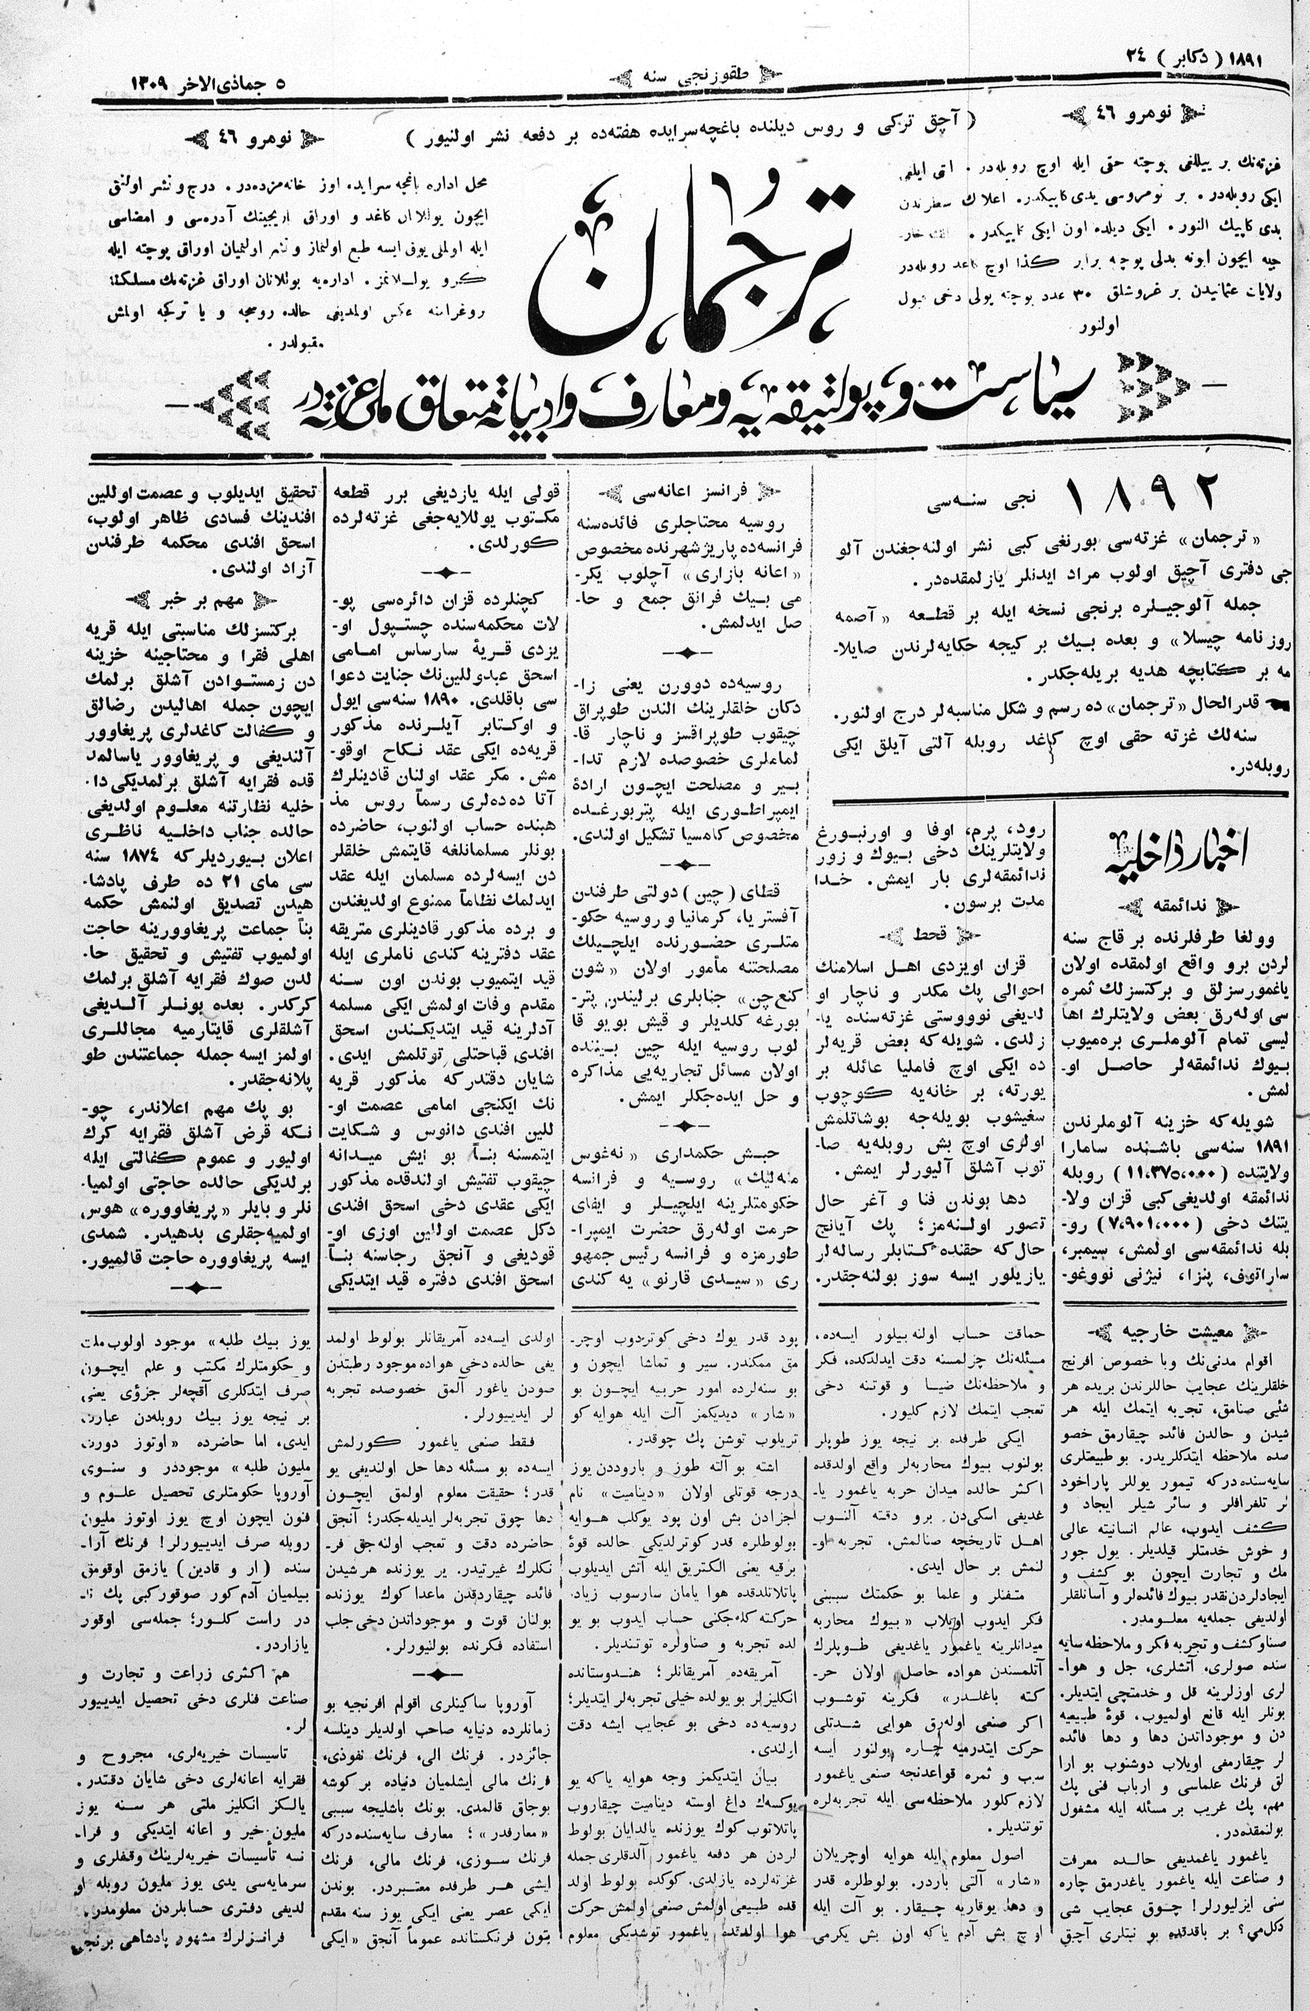 ١٨٩١ ( دكابر ) ٢٤
طقوزنجی سنه
٥ جماذی‌الاخر ١٣٠٩
نومرو ٤٦
( آچق تركی و روس دیلنده باغچه‌سرایده هفته‌ده بر دفعه نشر اولنیور )
نومرو ٤٦
غزته‌نك بر ییللغی پوچته حقی ایله اوچ روبله‌در. التی ایلغی
ایكی روبله‌در. بر نومروسی یدی كاپیكدر. اعلانك سطرندن
یدی كاپیك النور. ایكی دیلده اون ایكی كاپیكدر.
ایچون ابونه بدلی پوچه برابر اوچ كاغد روبله‌در
ولایات عثمانیدن بر غروشلق ٣٠ عدد پوچته پولی دخی قبول
اولنور
ترجمان
محل اداره باغچه سرایده اوز خانه‌مزده‌در. درج و نشر اولنمق
ایچون یوللانان كاغد و اوراق آدره‌سی و امضاسی
ایله اولملی یوق ایسه طبع اولنماز و نشر اولنمیان اوراق پوچته ایله
كرو یوللانمز. اداره‌یه یوللانان اوراق غزته‌نك مسلكنه
حالده روسجه و یا تركجه اولمش
مقبولدر.
سیاست و پولتیقه‌یه و معارف و ادبیاته متعلق ملی غزته‌در
١٨٩٢ نجی سنه‌سی
«ترجمان» غزته‌سی بورنغی كبی نشر اولنه‌جغندن آلو
جی دفتری آچیق اولوب مراد ایدنلر یازلمقده‌در.
جمله آلوجیلره برنجی نسخه ایله بر قطعه «آصمه
روزنامه چیسلا» و بعده بیك بر كیجه حكایه‌لرندن صایلا-
مه بر كتابچه هدیه بریله‌جكدر.
قدرالحال «ترجمان» ده رسم و شكل مناسبه‌لر درج اولنور.
سنه‌لك غزته حقی اوچ كاغد روبله آلتی آیلق ایكی
روبله‌در.
اخبار داخلیه
ندائمقه
وولغا طرفلرنده بر قاچ سنه
لردن برو واقع اولمقده اولان
یاغمورسزلق و بركتسزلك ثمره
سی اوله‌رق بعض ولایتلرك اها
لیسی تمام آلوملری بره‌میوب
بیوك ندائمقه‌لر حاصل او-
لمش.
شویله‌كه خزینه آلوملرندن
١٨٩١ سنه‌سی باشنده سامارا
ولایتنده (١١،٣٧٥،٠٠٠) روبله
ندائمقه اولدیغی كبی قزان ولا-
یتنك دخی (٧،٩٠١،٠٠٠) رو-
بله ندائمقه‌سی اولمش، سیمبر،
ساراتوف، پنزا، نیژنی نووغو-
رود، پرم، اوفا و اورنبورغ
ولایتلرینك دخی بیوك و زور
ندائمقه‌لری بار ایمش. خدا
مدت برسون.
قحط
قزان اویزدی اهل اسلامنك
احوالی پك مكدر و ناچار او
لدیغی نووستی غزته‌سنده یا-
زلدی. شویله‌كه بعض قریه‌لر
ده ایكی اوچ فاملیا عائله بر
یورته، بر خانه‌یه كوچوب
سغیشوب بویله‌جه بوشاتلمش
اولری اوچ بش روبله‌یه صا-
توب آشلق آلیورلر ایمش.
دها بوندن فنا و آغر حال
تصور اولنه‌مز؛ پك آیانچ
حال‌كه حقنده كتابلر رساله‌لر
یازیلور ایسه سوز بولنه‌جقدر.
فرانسز اعانه‌سی
روسیه محتاجلری فائده‌سنه
فرانسه‌ده پاریژ شهرنده مخصوص
«اعانه بازاری» آچلوب یكر-
می بیك فرانق جمع و حا-
صل ایدلمش.
روسیه‌ده دوورن یعنی زا-
دكان خلقلرینك الندن طوپراق
چیقوب طوپراقسز و ناچار قا-
لماملری خصوصده لازم تدا-
بیر و مصلحت ایچون ارادهٔ
ایمپراطوری ایله پتربورغده
مخصوص كامسیا تشكیل اولندی.
قطای (چین) دولتی طرفندن
آفستریا، كرمانیا و روسیه حكو-
متلری حضورنده ایلچیلك
مصلحتنه مأمور اولان «شون
كنع‌چن» جنابلری برلیندن پتر-
بورغه كلدیلر و قیش بویو قا
لوب روسیه ایله چین بیننده
اولان مسائل تجاریه‌یی مذاكره
و حل ایده‌جكلر ایمش.
حبش حكمداری «نه‌غوس
منه‌لیك» روسیه و فرانسه
حكومتلرینه ایلچیلر و ایفای
حرمت اوله‌رق حضرت ایمپرا-
طورمزه و فرانسه رئیس جمهو
ری «سیدی قارنو» یه كندی
قولی ایله یازدیغی برر قطعه
مكتوب یوللایه‌جغی غزته‌لرده
كورلدی.
كچنلرده قزان دائره‌سی پو-
لات محكمه‌سنده چستپول او-
یزدی قریهٔ سارساس امامی
اسحق عبدوللین‌نك جنایت دعوا
سی باقلدی. ١٨٩٠ سنه‌سی ایول
و اوكتابر آیلرنده مذكور
قریه‌ده ایكی عقد نكاح اوقو-
مش. مكر عقد اولنان قادینلرك
آنا ده‌ده‌لری رسماً روس مذ
هبنده حساب اولنوب، حاضرده
بونلر مسلمانلغه قایتمش خلقلر
دن ایسه‌لرده مسلمان ایله عقد
ایدلمك نظاماً ممنوع اولدیغندن
و برده مذكور قادینلری متریقه
عقد دفترینه كندی ناملری ایله
قید ایتمیوب بوندن اون سنه
مقدم وفات اولمش ایكی مسلمه
آدلرینه قید ایتدیكندن اسحق
افندی قباحتلی توتلمش ایدی.
شایان دقتدركه مذكور قریه
نك ایكنجی امامی عصمت او-
للین افندی دانوس و شكایت
ایتمسنه بناً بو ایش میدانه
چیقوب تفتیش اولندقده مذكور
ایكی عقدی دخی اسحق افندی
دكل عصمت اوللین اوزی او-
قودیغی و آنجق رجاسنه بناً
اسحق افندی دفتره قید ایتدیكی
تحقیق ایدیلوب و عصمت اوللین
افندینك فسادی ظاهر اولوب،
اسحق افندی محكمه طرفندن
آزاد اولندی.
مهم بر خبر
بركتسزلك مناسبتی ایله قریه
اهلی فقرا و محتاجینه خزینه
دن زمستوادن آشلق برلمك
ایچون جمله اهالیدن رضالق
و كفالت كاغدلری پریغاوور
آلندیغی و پریغاوور یاسالمد
قده فقرایه آشلق برلمدیكی دا-
خلیه نظارتنه معلوم اولدیغی
حالده جناب داخلیه ناظری
اعلان بیوردیلركه ١٨٧٤ سنه
سی مای ٢١ ده طرف پادشا-
هیدن تصدیق اولنمش حكمه
بناً جماعت پریغاوورینه حاجت
اولمیوب تفتیش و تحقیق حا-
لدن صوك فقرایه آشلق برلمك
كركدر. بعده بونلر آلدیغی
آشلقلری قایتارمیه مجاللری
اولمز ایسه جمله جماعتندن طو
پلانه‌جقدر.
بو پك مهم اعلاندر، چو-
نكه قرض آشلق فقرایه كرك
اولیور و عموم كفالتی ایله
برلدیكی حالده حاجتی اولمیا-
نلر و بایلر «پریغاووره» هوس
اولمیه‌جقلری بدهیدر. شمدی
ایسه پریغاووره حاجت قالمیور.
معیشت خارجیه
اقوام مدنی‌نك وبا خصوص افرنج
خلقلرینك عجایب حاللرندن بریده هر
شئیی صنامق، تجربه ایتمك ایله هر
شیدن و حالدن فائده چیقارمق خصو
صده ملاحظه ایتدكلریدر. بو طبیعتلری
سایه‌سنده‌دركه تیمور یوللر پاراخود
لر تلغرافلر و سائر شیلر ایجاد و
كشف ایدوب، عالم انسانیته عالی
و خوش خدمتلر قیلدیلر. یول جور
مك و تجارت ایچون بو كشف و
ایجادلردن نقدر بیوك فائده‌لر و آسانلقلر
اولدیغی جمله‌یه معلومدر.
صناو كشف و تجربه فكر و ملاحظه سایه
سنده صولری، آتشلری، جل و هوا-
لری اوزلرینه قل و خدمتچی ایتدیلر.
بونلر ایله قانع اولمیوب، قوهٔ طبیعیه
دن و موجوداتدن دها و دها فائده
لر چیقارمغی اویلاب دوشنوب بو ارا
لق فرنك علماسی و ارباب فنی پك
مهم، پك غریب بر مسئله ایله مشغول
بولنمقده‌در.
یاغمور یاغمدیغی حالده معرفت
و صناعت ایله یاغمور یاغدرمق چاره
سنی ایزلیورلر! چوق عجایب شی
دكل‌می؟ بر باقدقده بو نیتلری آچیق
حماقت حساب اولنه بیلور ایسه‌ده،
مسئله‌نك چزلمسنه دقت ایدلدكده، فكر
و ملاحظه‌نك ضیا و قوتنه دخی
تعجب ایتمك لازم كلیور.
ایكی طرفده بر نیجه یوز طوپلر
بولنوب بیوك محاربه‌لر واقع اولدقده
اكثر حالده میدان حربه یاغمور یا-
غدیغی اسكیدن برو دقته آلنوب
اهل تاریخچه صنالمش، تجربه او-
لنمش بر حال ایدی.
متفنلر و علما بو حكمتك سببنی
فكر ایدوب اویلاب «بیوك محاربه
میدانلرینه یاغمور یاغدیغی طوپلرك
آتلمسندن هواده حاصل اولان حر-
كته باغلدر» فكرینه توشوب
اكر صنعی اوله‌رق هوایی شدتلی
حركت ایتدرمیه چاره بولنور ایسه
سبب و ثمره قواعدنجه صنعی یاغمور
لازم كلور ملاحظه‌سی ایله تجربه‌لره
توتندیلر.
اصول معلوم ایله هوایه اوچریلان
«شار» آلتی باردر. بولوطلره قدر
و دها یوقاریه چیقار. بو آلت ایله
اوچ بش آدم یاكه اون بش یكرمی
پود قدر یوك دخی كوتردوب اوچر-
مق ممكندر. سیر و تماشا ایچون و
بو سنه‌لرده امور حربیه ایچون بو
«شار» دیدیكمز آلت ایله هوایه كو
تریلوب توشن پك چوقدر.
اشته بو آلته طوز و باروددن یوز
درجه قوتلی اولان «دینامیت» نام
اجزادن بش اون پود یوكلب هوایه
بولوطلره قدر كوترلدیكی حالده قوهٔ
برقیه یعنی الكتریق ایله آتش ایدیلوب
پاتلاتلدقده هوا یامان سارسوب زیاد.
حركته كله‌جكنی حساب ایدوب بو یو
لده تجربه و صناولره توتندیلر.
آمریقه‌ده آمریقانلر؛ هندوستانده
انكلیزلر بو یولده خیلی تجربه‌لر ایتدیلر؛
روسیه‌ده دخی بو عجایب ایشه دقت
ارلندی.
بیان ایتدیكمز وجه هوایه یاكه یو
یوكسه‌ك داغ اوسته دینامیت چیقاروب
پاتلاتوب كوك یوزنده یالدایان بولوط
لردن هر دفعه یاغمور آلدقلری جمله
غزته‌لرده یازلدی. كوكده بولوط اولد
قده طبیعی اولمش صنعی اولمش حركت
هوا اولدقده یاغمور توشدیكی معلوم
اولدی ایسه‌ده آمریقانلر بولوط اولمد
یغی حالده دخی هواده موجود رطبتدن
صودن یاغور آلمق خصوصده تجربه
لر ایدییورلر.
فقط صنعی یاغمور كورلمش
ایسه‌ده بو مسئله دها حل اولندیغی یو
قدر؛ حقیقت معلوم اولمق ایچون
دها چوق تجربه‌لر ایدیله‌جكدر؛ آنجق
حاضرده دقت و تعجب اولنه‌جق فر-
نكلرك غیرتیدر. یر یوزنده هر شیدن
فائده چیقاردقدن ماعدا كوك یوزنده
بولنان قوت و موجوداتدن دخی جلب
استفاده فكرنده بولنیورلر.
آوروپا ساكینلری اقوام افرنجیه بو
زمانلرده دنیایه صاحب اولدیلر دینلسه
جائزدر. فرنك الی، فرنك نفوذی،
فرنك مالی ایشلمیان دنیاده بر كوشه
بوجاق قالمدی. بونك باشلیجه سببی
«معارفدر»؛ معارف سایه‌سنده‌دركه
فرنك سوزی، فرنك مالی، فرنك
ایشی هر طرفده معتبردر. بوندن
ایكی عصر یعنی ایكی یوز سنه مقدم
بتون فرنكستانده عموماً آنجق «ایكی
یوز بیك طلبه» موجود اولوب ملت
و حكومتلرك مكتب و علم ایچون
صرف ایتدكلری آقچه‌لر جزؤی یعنی
بر نیجه یوز بیك روبله‌دن عبارت
ایدی، اما حاضرده «اوتوز دورت
ملیون طلبه» موجوددر و سنوی
آوروپا حكومتلری تحصیل علوم و
فنون ایچون اوچ یوز اوتوز ملیون
روبله صرف ایدییورلر! فرنك آرا-
سنده (ار و قادین) یازمق اوقومق
بیلمیان آدم كور صوقور كبی پك نا-
در راست كلور؛ جمله‌سی اوقور
یازاردر.
هم اكثری زراعت و تجارت و
صناعت فنلری دخی تحصیل ایدییور
لر.
تاسیسات خیریه‌لری، مجروح و
فقرایه اعانه‌لری دخی شایان دقتدر.
یالكز انكلیز ملتی هر سنه یوز
ملیون خیر و اعانه ایتدیكی و فرا-
نسه تأسیسات خیریه‌لرینك وقفلری و
سرمایه‌سی یدی یوز ملیون روبله او
لدیغی دفتری حسابلردن معلومدر.
فرانسزلرك مشهور پادشاهی برنجی